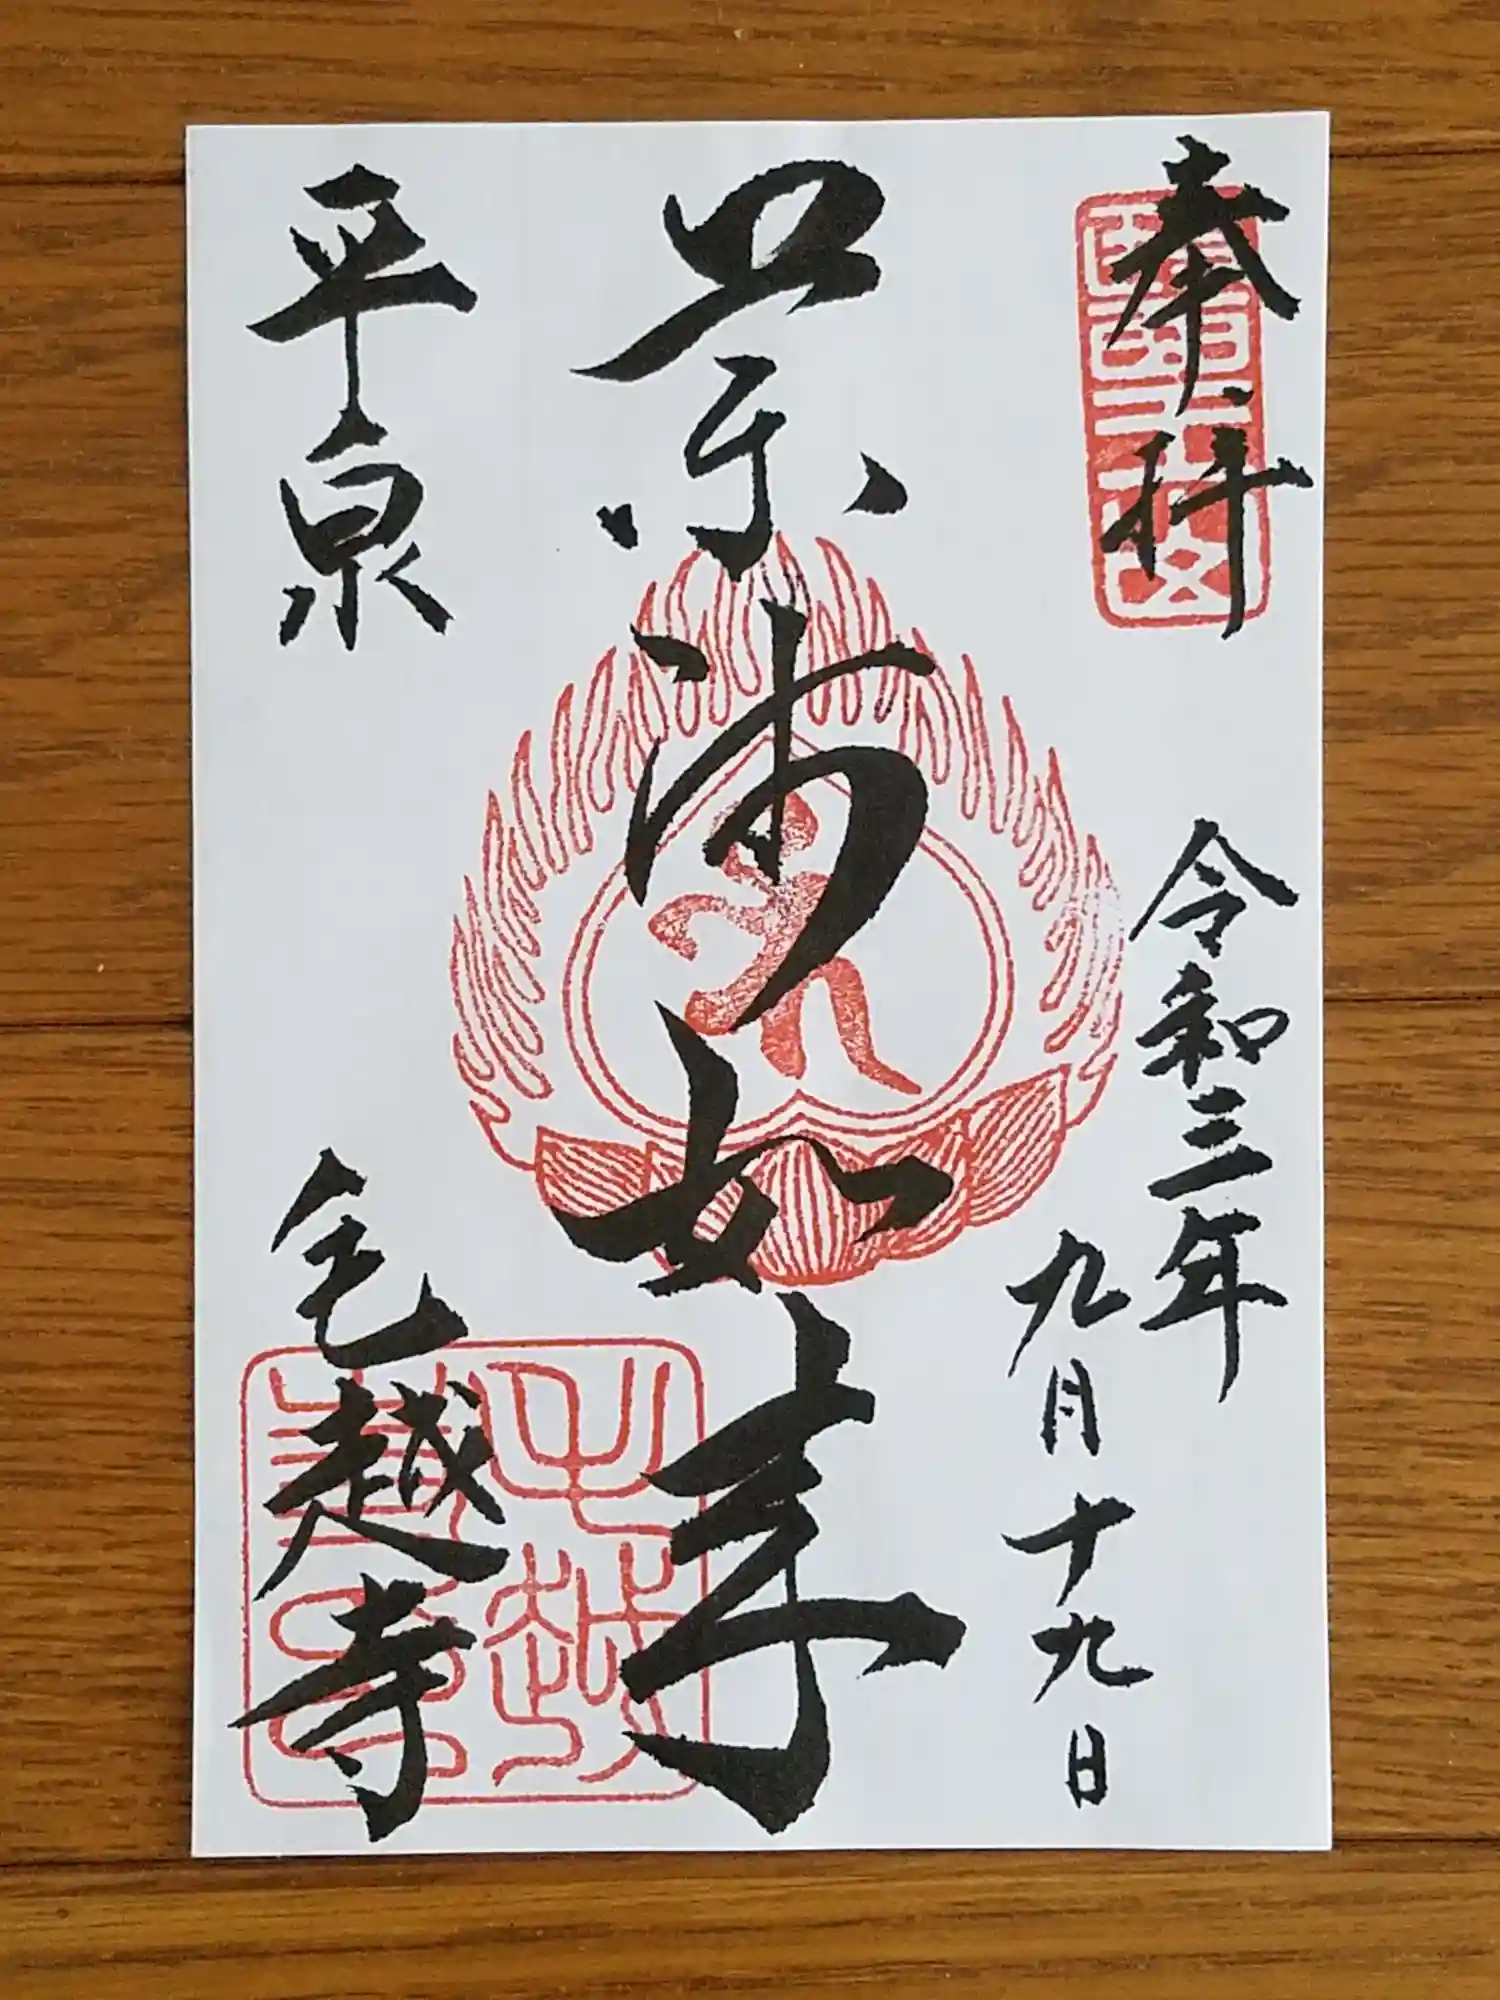 奉拝
令和三年
九月十九日
薬師如来
平泉
毛越寺